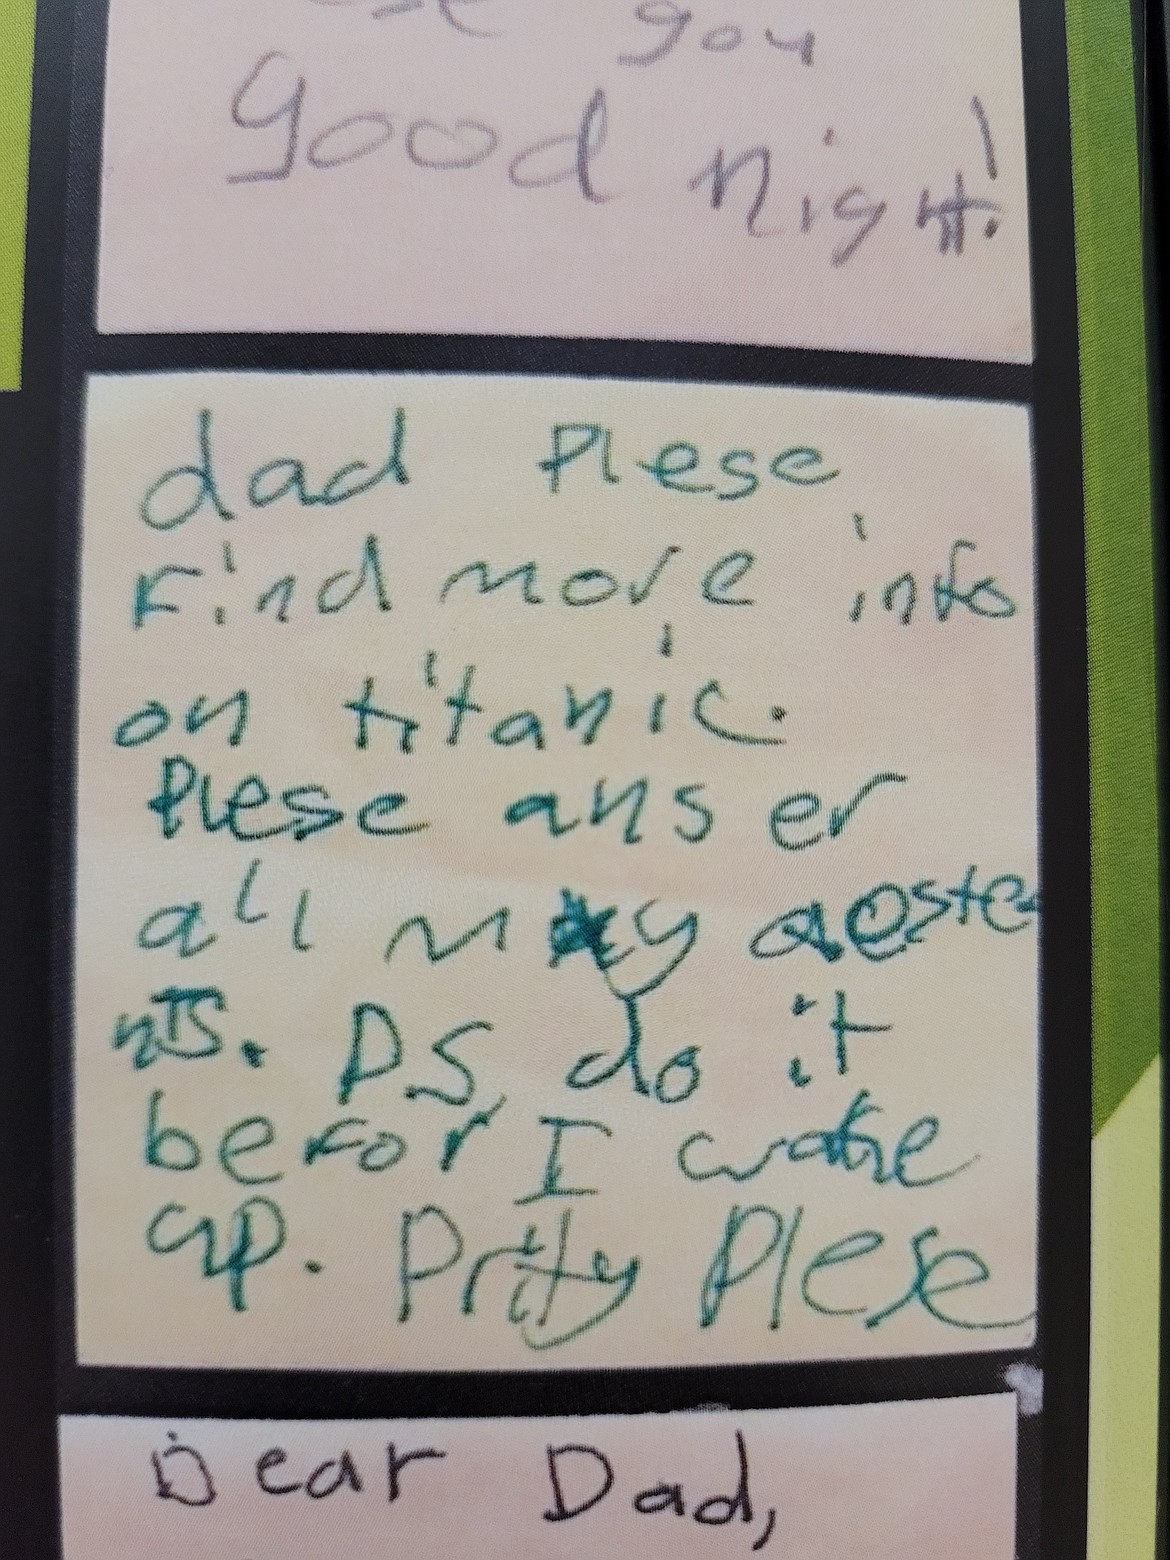 you
good night!
dad Plese
Find more info
on titanic.
Plese anser
all my qoste
nts. PS, do it
befor I wake
up. Prity Plese
Dear Dad,